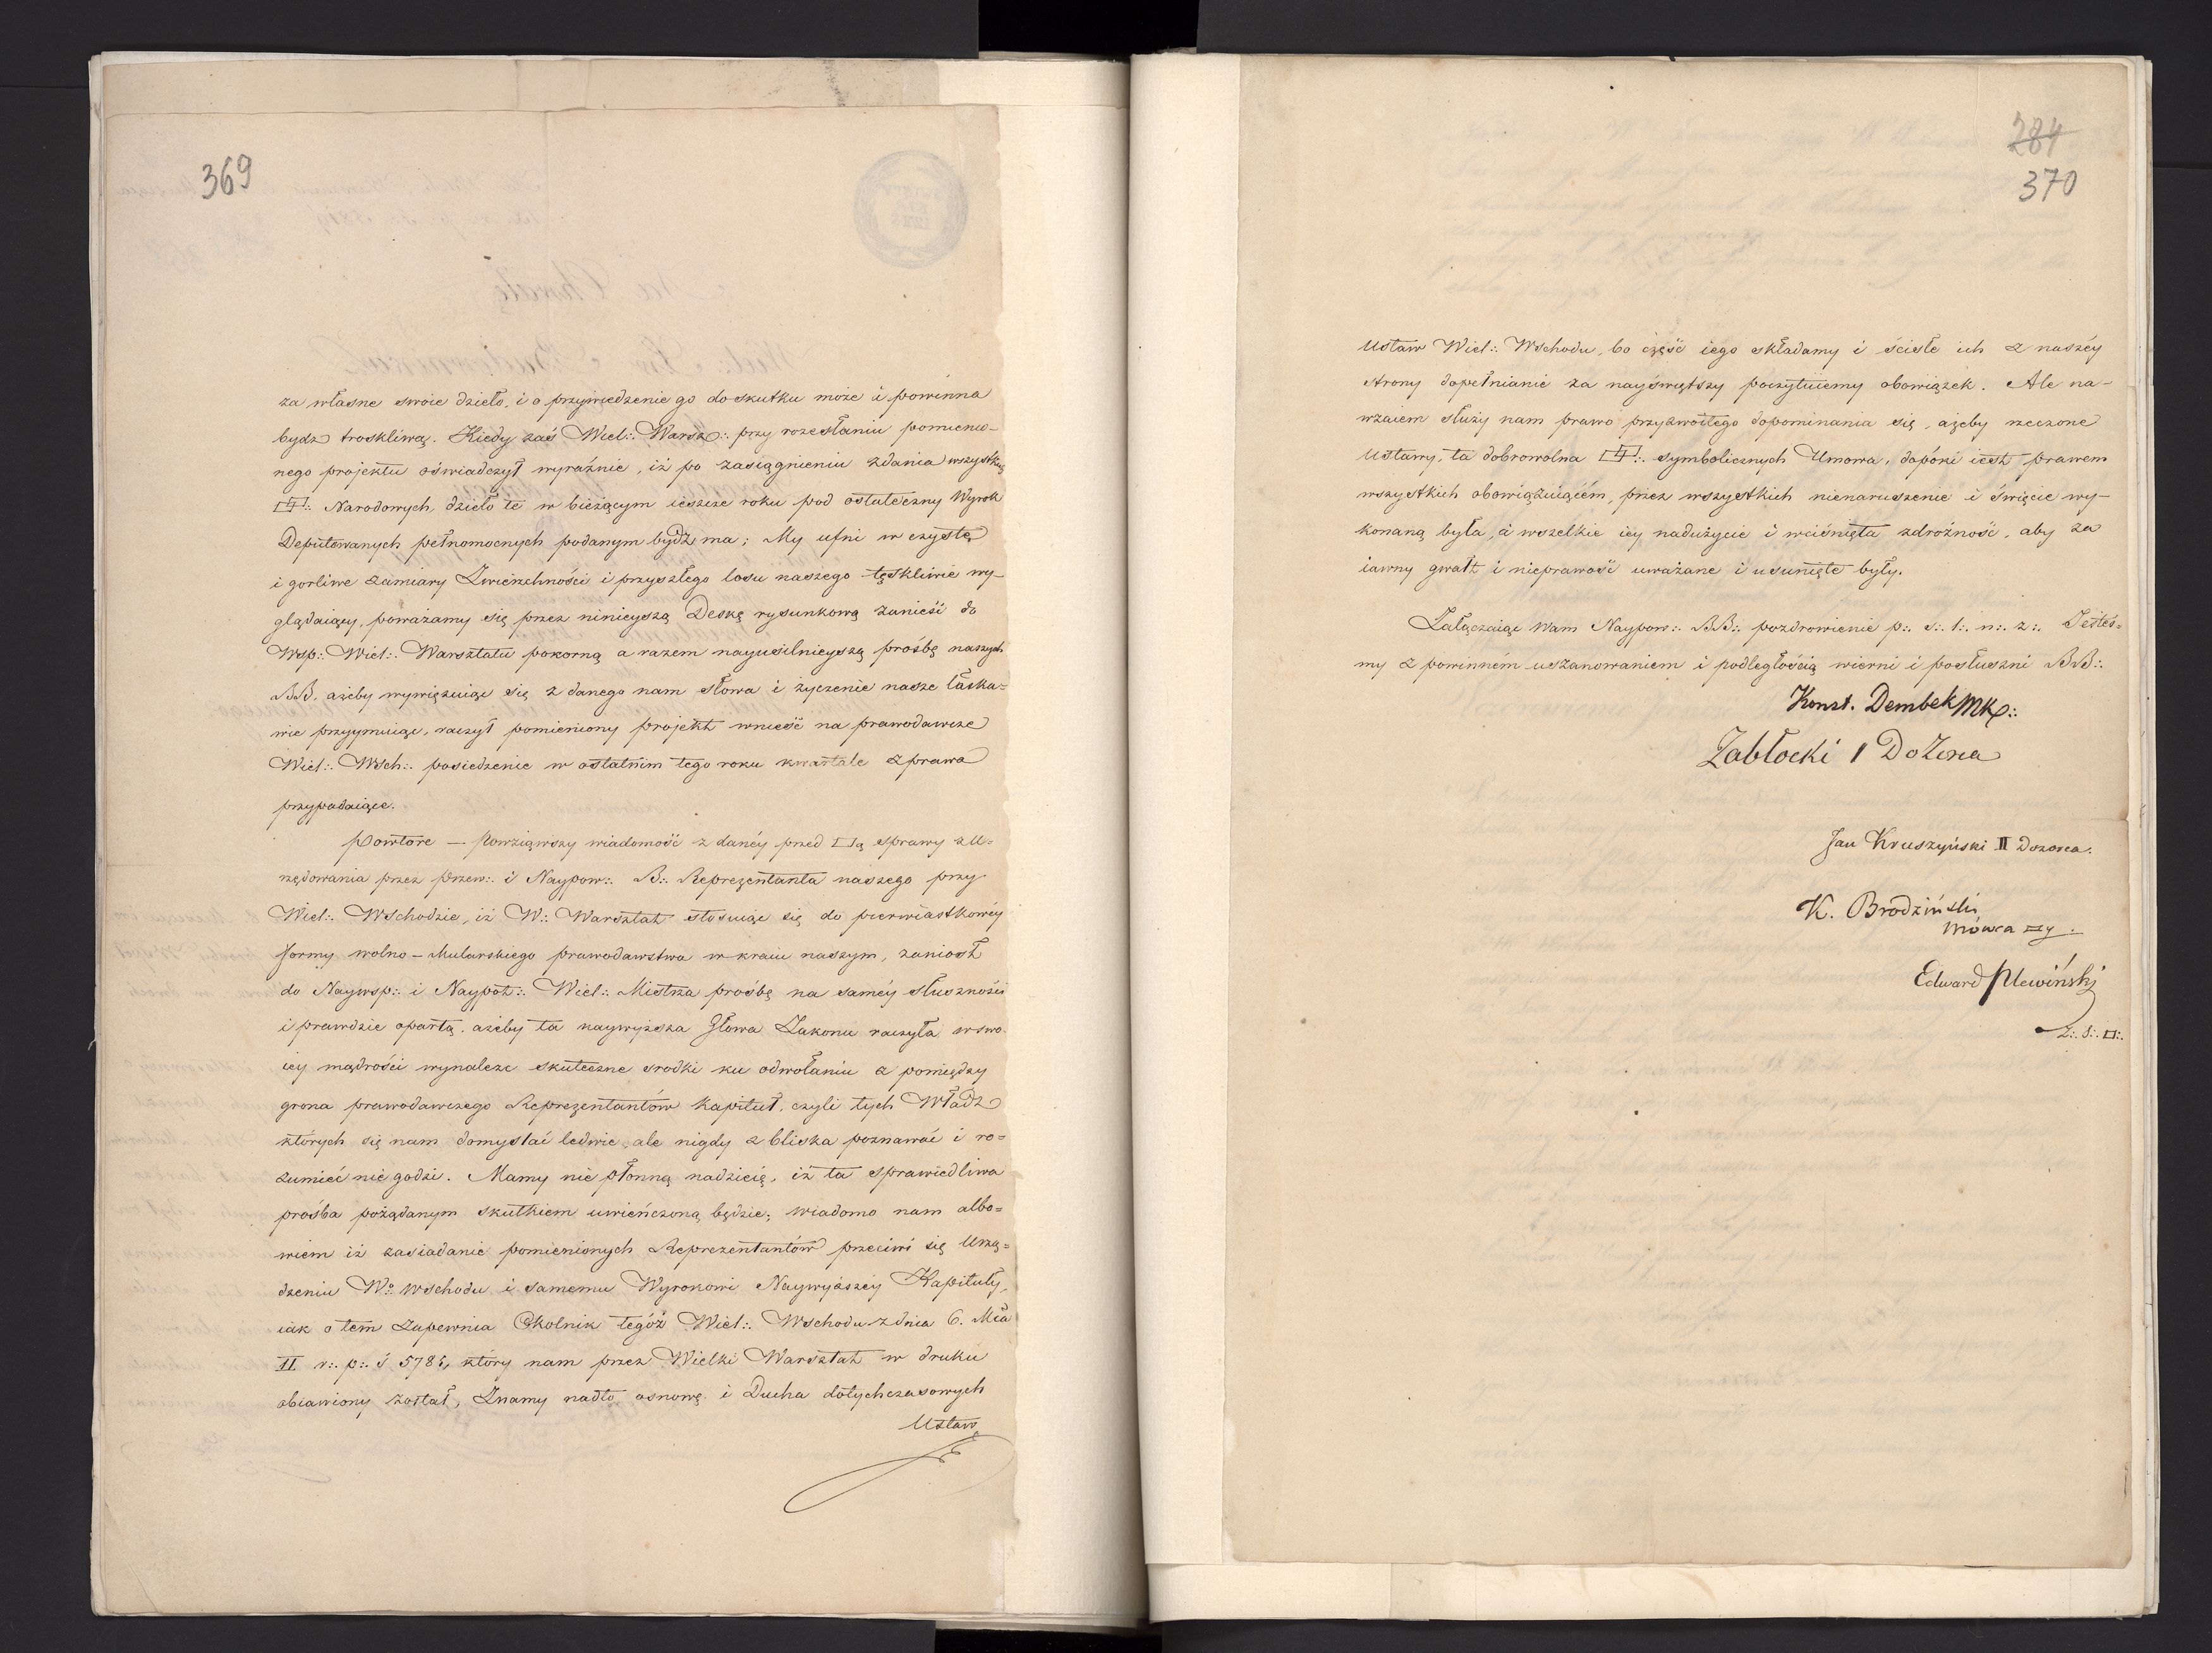 369
za własne swoie dzieło, i o przywiedzenie go do skutku może i powinna
bydz troskliwą. Kiedy zaś Wiel:. Warsz:. przy rozesłaniu pomienio-
nego projektu oświadczył wyraźnie, iż po zasiągnieniu zdania wszystkich
Narodowych, dzieło te w bieżącym ieszcze roku pod ostateczny Wyrok
Deputowanych pełnomocnych podanym bydź ma; My ufni w czyste
i gorliwe zamiary Zwierzchności i przyszłego losu naszego tęskliwie wy-
glądaiący, poważamy się przez ninieyszą Deskę rysunkową zanieść do
Wsp:. Wiel:. Warsztatu pokorną a razem nayusilnieyszą prośbę naszych
BB. ażeby wywięzuiąc się z danego nam słowa i życzenie nasze łaska=
wie przyymuiąc, raczył pomieniony projekt wnieść na prawodawcze
Wiel:. Wsch:. posiedzenie w ostatnim tego roku kwartale z prawa
przypadaiące.
Powtóre — Powziąwszy wiadomość z danéy przed □ą sprawy z U=
rzędowania przez Przew:. i Naypow:. B:. Reprezentanta naszego przy
Wiel:. Wschodzie, iż W:. Warsztat stosuiąc się do pierwiastkowéy
formy wolno-Mularskiego prawodawstwa w kraiu naszym, zaniosł
do Naywsp:. i Naypot:. Wiel:. Mistrza prośbę na saméy słuszności
i prawdzie opartą, ażeby ta naywyższa Głowa Zakonu raczyła w swo-
iey mądrości wynaleźć skuteczne srodki ku odwołaniu z pomiędzy
grona prawodawczego Reprezentantów Kapituł, czyli tych Władz
których się nam domyslać ledwie, ale nigdy z bliska poznawać i ro=
zumieć nie godzi. Mamy nie płonną nadzieię, iż ta sprawiedliwa
prośba pożądanym skutkiem uwieńczoną będzie; wiadomo nam albo=
wiem iż zasiadanie pomienionych Reprezentantów przeciwi się Urzą=
dzeniu W:. Wschodu i samemu Wyrokowi Naywyższéy Kapituły,
iak o tem zapewnia Okolnik tegóż Wiel:. Wschodu z dnia 6. Mca
II r:. p:. ś 5785, który nam przez Wielki Warsztat w druku
obiawiony został, Znamy nadto, osnowę i Ducha dotychczasowych
Ustaw
284
370
Ustaw Wiel:. Wschodu, bo część iego składamy i ścisłe ich z naszéy
strony dopełnianie za nayświętszy poczytuiemy obowiązek. Ale na-
wzaiem służy nam prawo przyzwoitego dopominania się, ażeby rzeczone
Ustawy, ta dobrowolna symbolicznych Umowa, dopóki iest prawem
wszystkich obowięzuiącém, przez wszystkich nienaruszenie i święcie wy-
konaną była, a wszelkie iéy nadużycie i wciśnięta zdrożność, aby za
iawny gwałt i nieprawość uważane i usunięte były.
Załączaiąc Wam Naypow:. BB:. pozdrowienie p:. s:. l:. n:. z:. Jesteś=
my z powinném uszanowaniem i podległością wierni i posłuszni BB:.
Konst. Dembek MK:.
Zabłocki I Dozorca
Jan Kruszyński II Dozorca.
K. Brodziński
Mówca □y.
Edward Plewiński